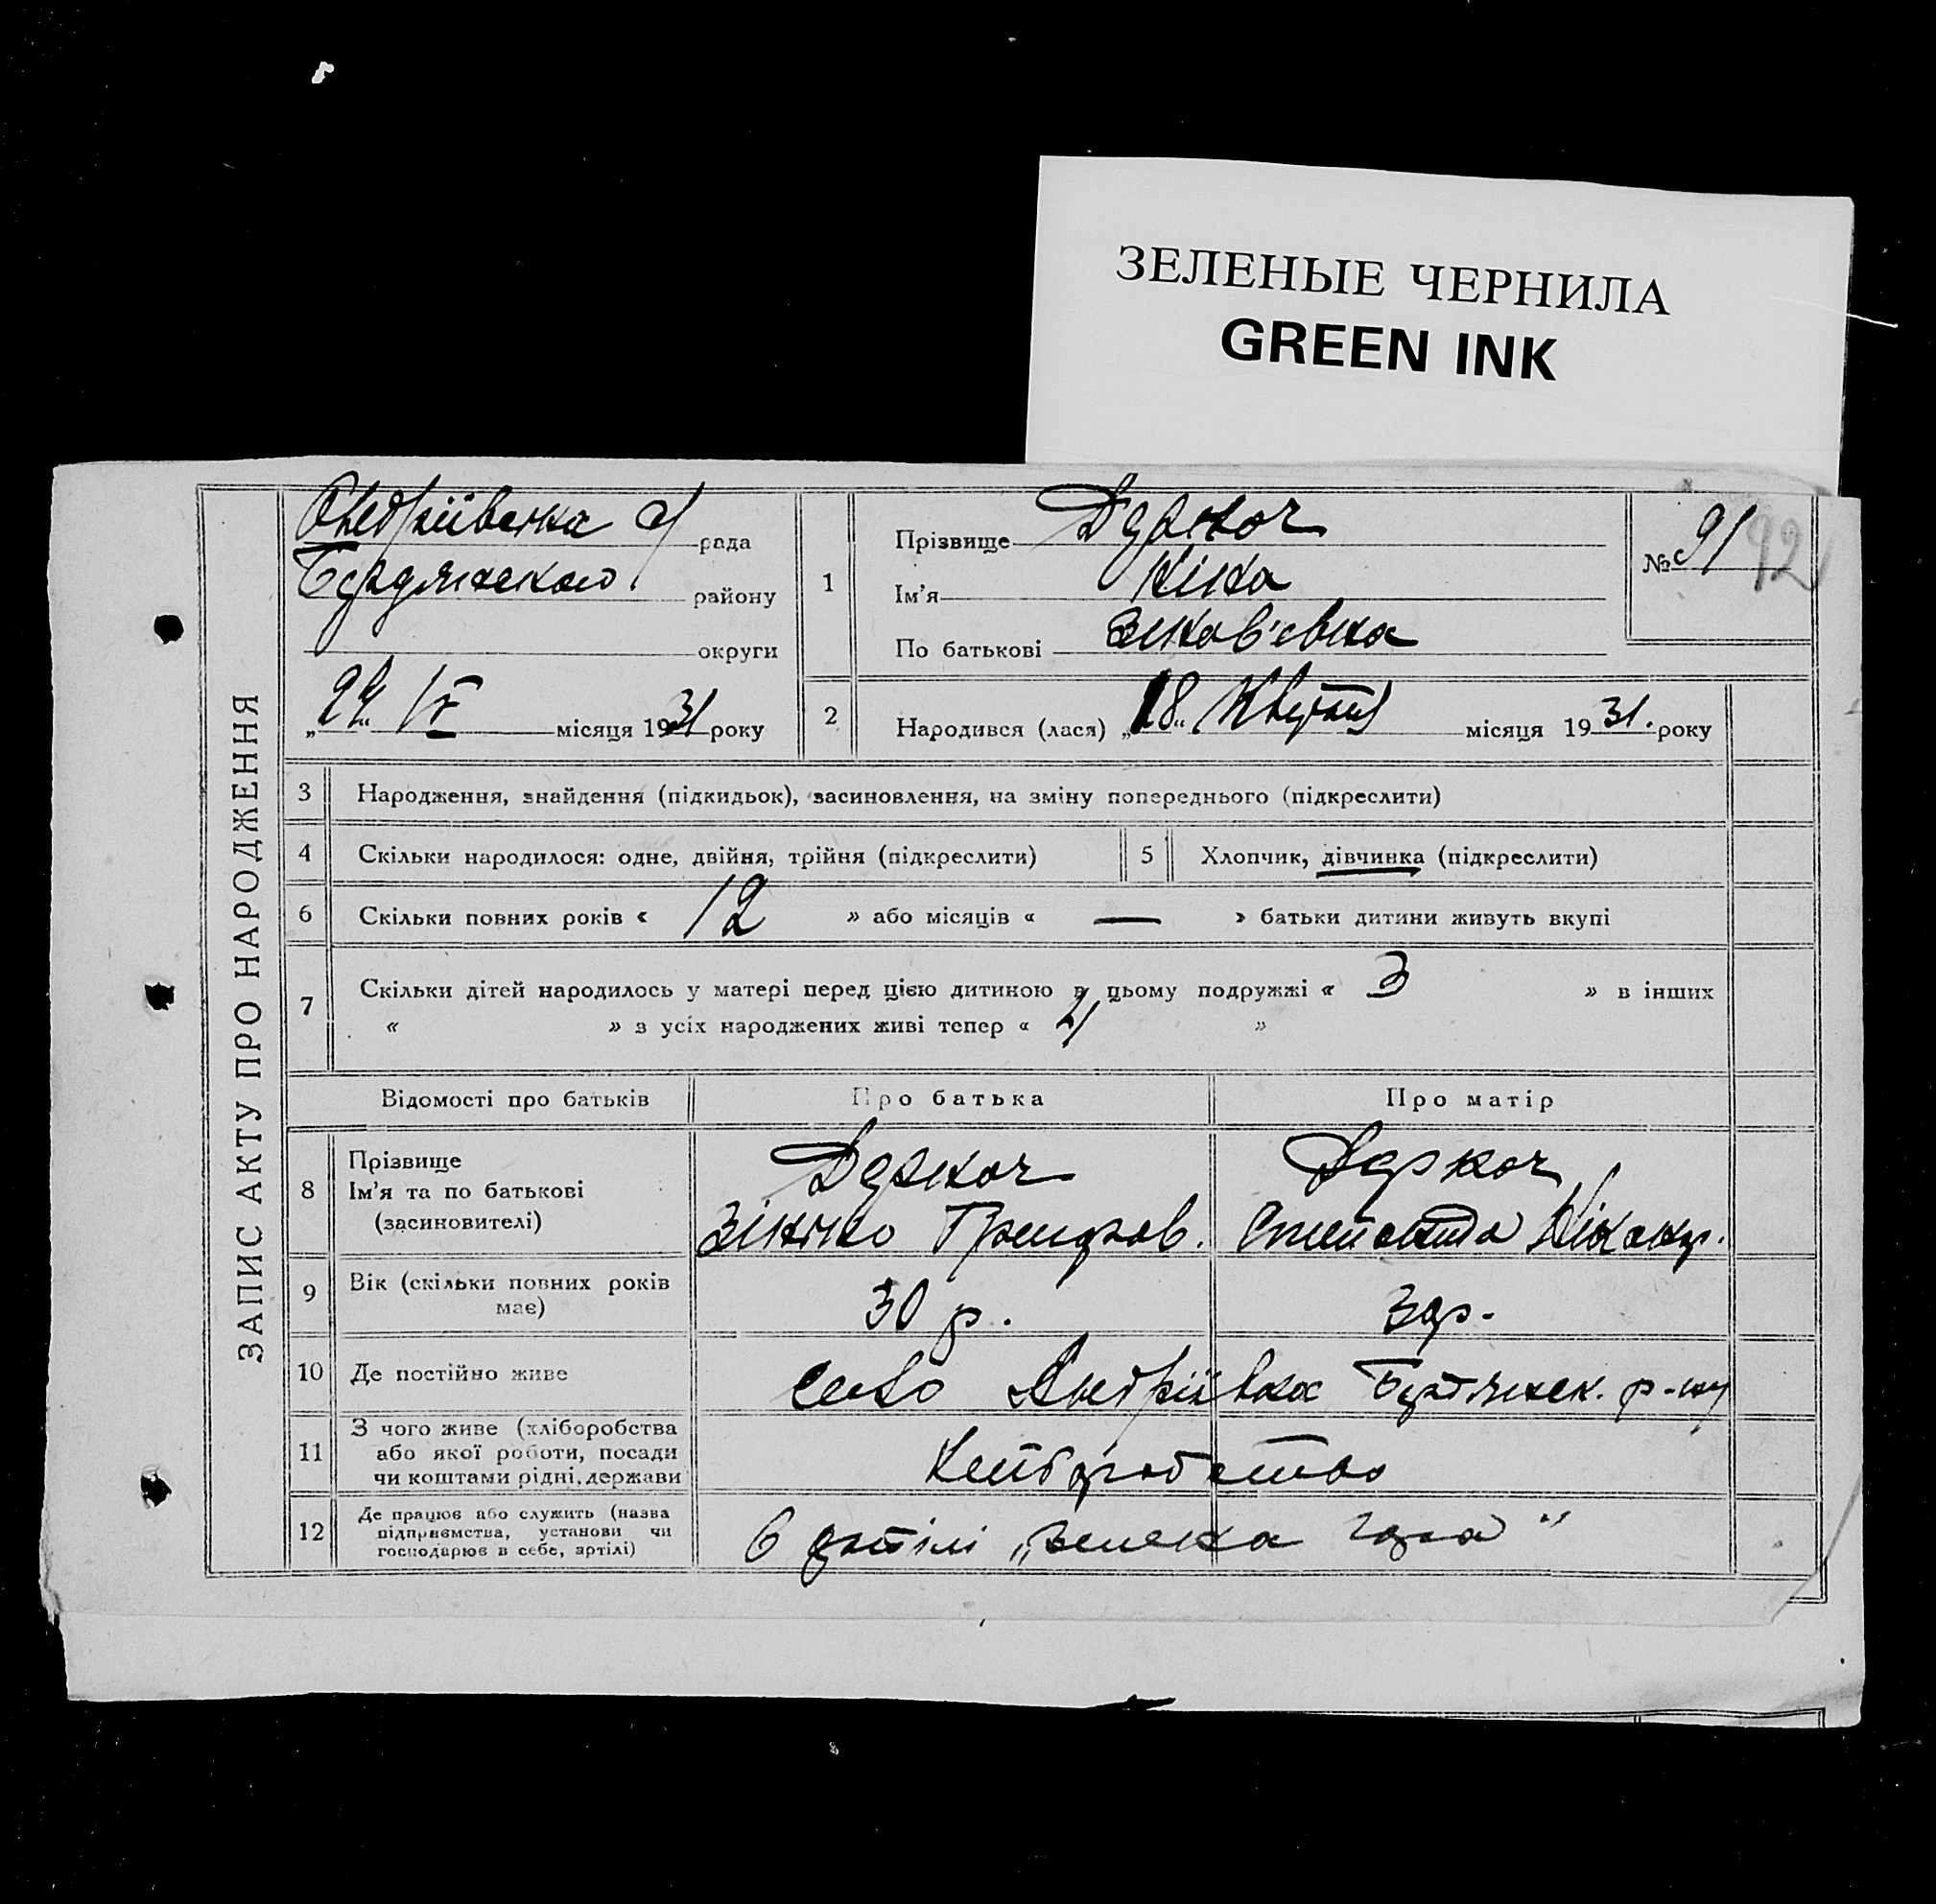 ЗЕЛЕНЫЕ ЧЕРНИЛА
GREEN INK
ЗАПИС АКТУ ПРО НАРОДЖЕННЯ
Андріївська с/рада
Бердянського району
округи
„29“ IV місяця 1931 року
1
Прізвище Деркач
Ім'я Ніна
По батькові Зінов'євна
№ 91 92
2 Народився (лася) „18“ Квітня місяця 1931. року
3 Народження, знайдення (підкидьок), засиновлення, на зміну попереднього (підкреслити)
4 Скільки народилося: одне, двійня, трійня (підкреслити)
5 Хлопчик, дівчинка (підкреслити)
6 Скільки повних років « 12 » або місяців « — » батьки дитини живуть вкупі
7 Скільки дітей народилось у матері перед цією дитиною в цьому подружжі « 3 » в інших
« » з усіх народжених живі тепер « »
Відомості про батьків Про батька Про матір
8 Прізвище Деркач Деркач
Ім'я та по батькові
(засиновителі) Зінько Григоров. Степанида
9 Вік (скільки повних років має) 30 р. р.
10 Де постійно живе село Андріївка Бердянськ. р-ну
11 З чого живе (хліборобства
або якої роботи, посади
чи коштами рідні, держави Хліборобство
12 Де працює або служить (назва
підприємства, установи чи
господарює в себе, артілі) в артілі „зелена “